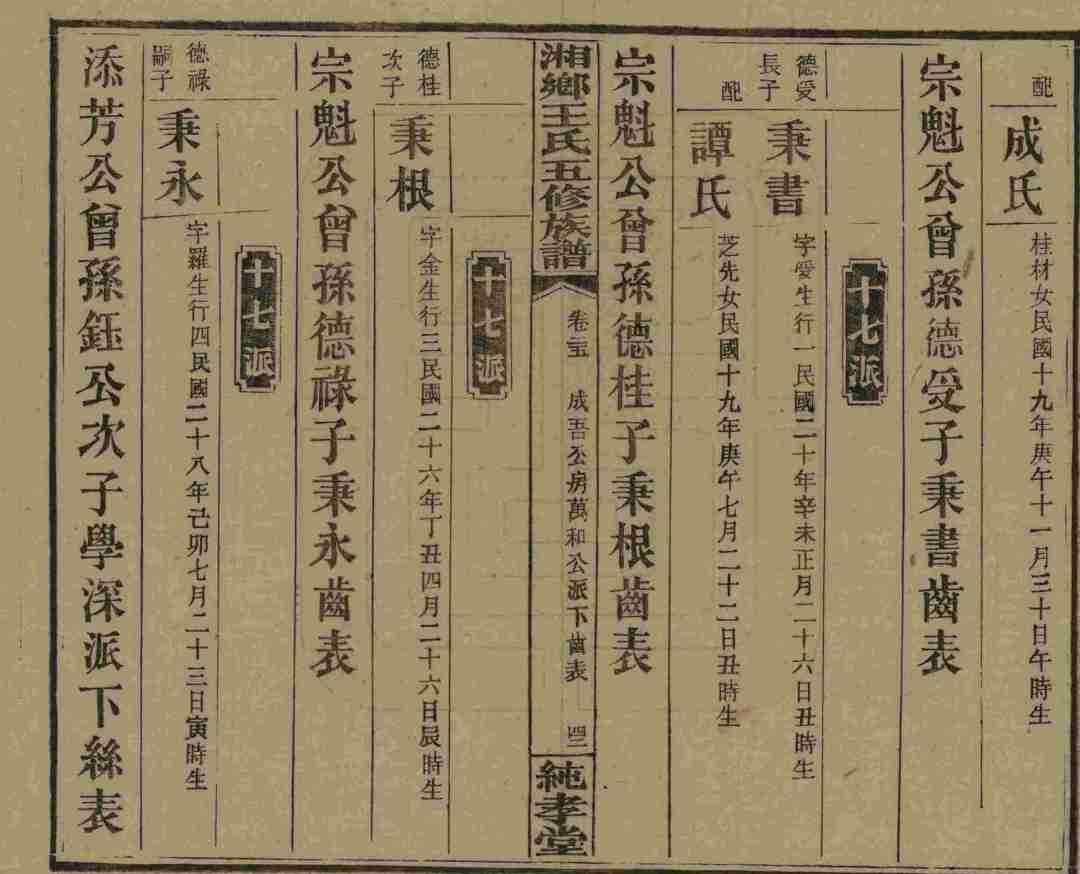 配
成氏
桂材女民國十九年庚午十一月三十日午時生
宗魁公曾孫德受子秉書齒表
十七派
德受
長子
秉書
字愛生行一民國二十年辛未正月二十六日丑時生
配
譚氏
芝先女民國十九年庚午七月二十二日丑時生
宗魁公曾孫德桂子秉根齒表
湘鄉王氏五修族譜
卷
成吾公房萬和公派下齒表
純孝堂
十七派
德桂
次子
秉根
字金生行三民國二十六年丁丑四月二十六日辰時生
宗魁公曾孫德祿子秉永齒表
十七派
德祿
嗣子
秉永
字羅生行四民國二十八年己卯七月二十三日寅時生
添芳公曾孫鈺公次子學深派下絲表